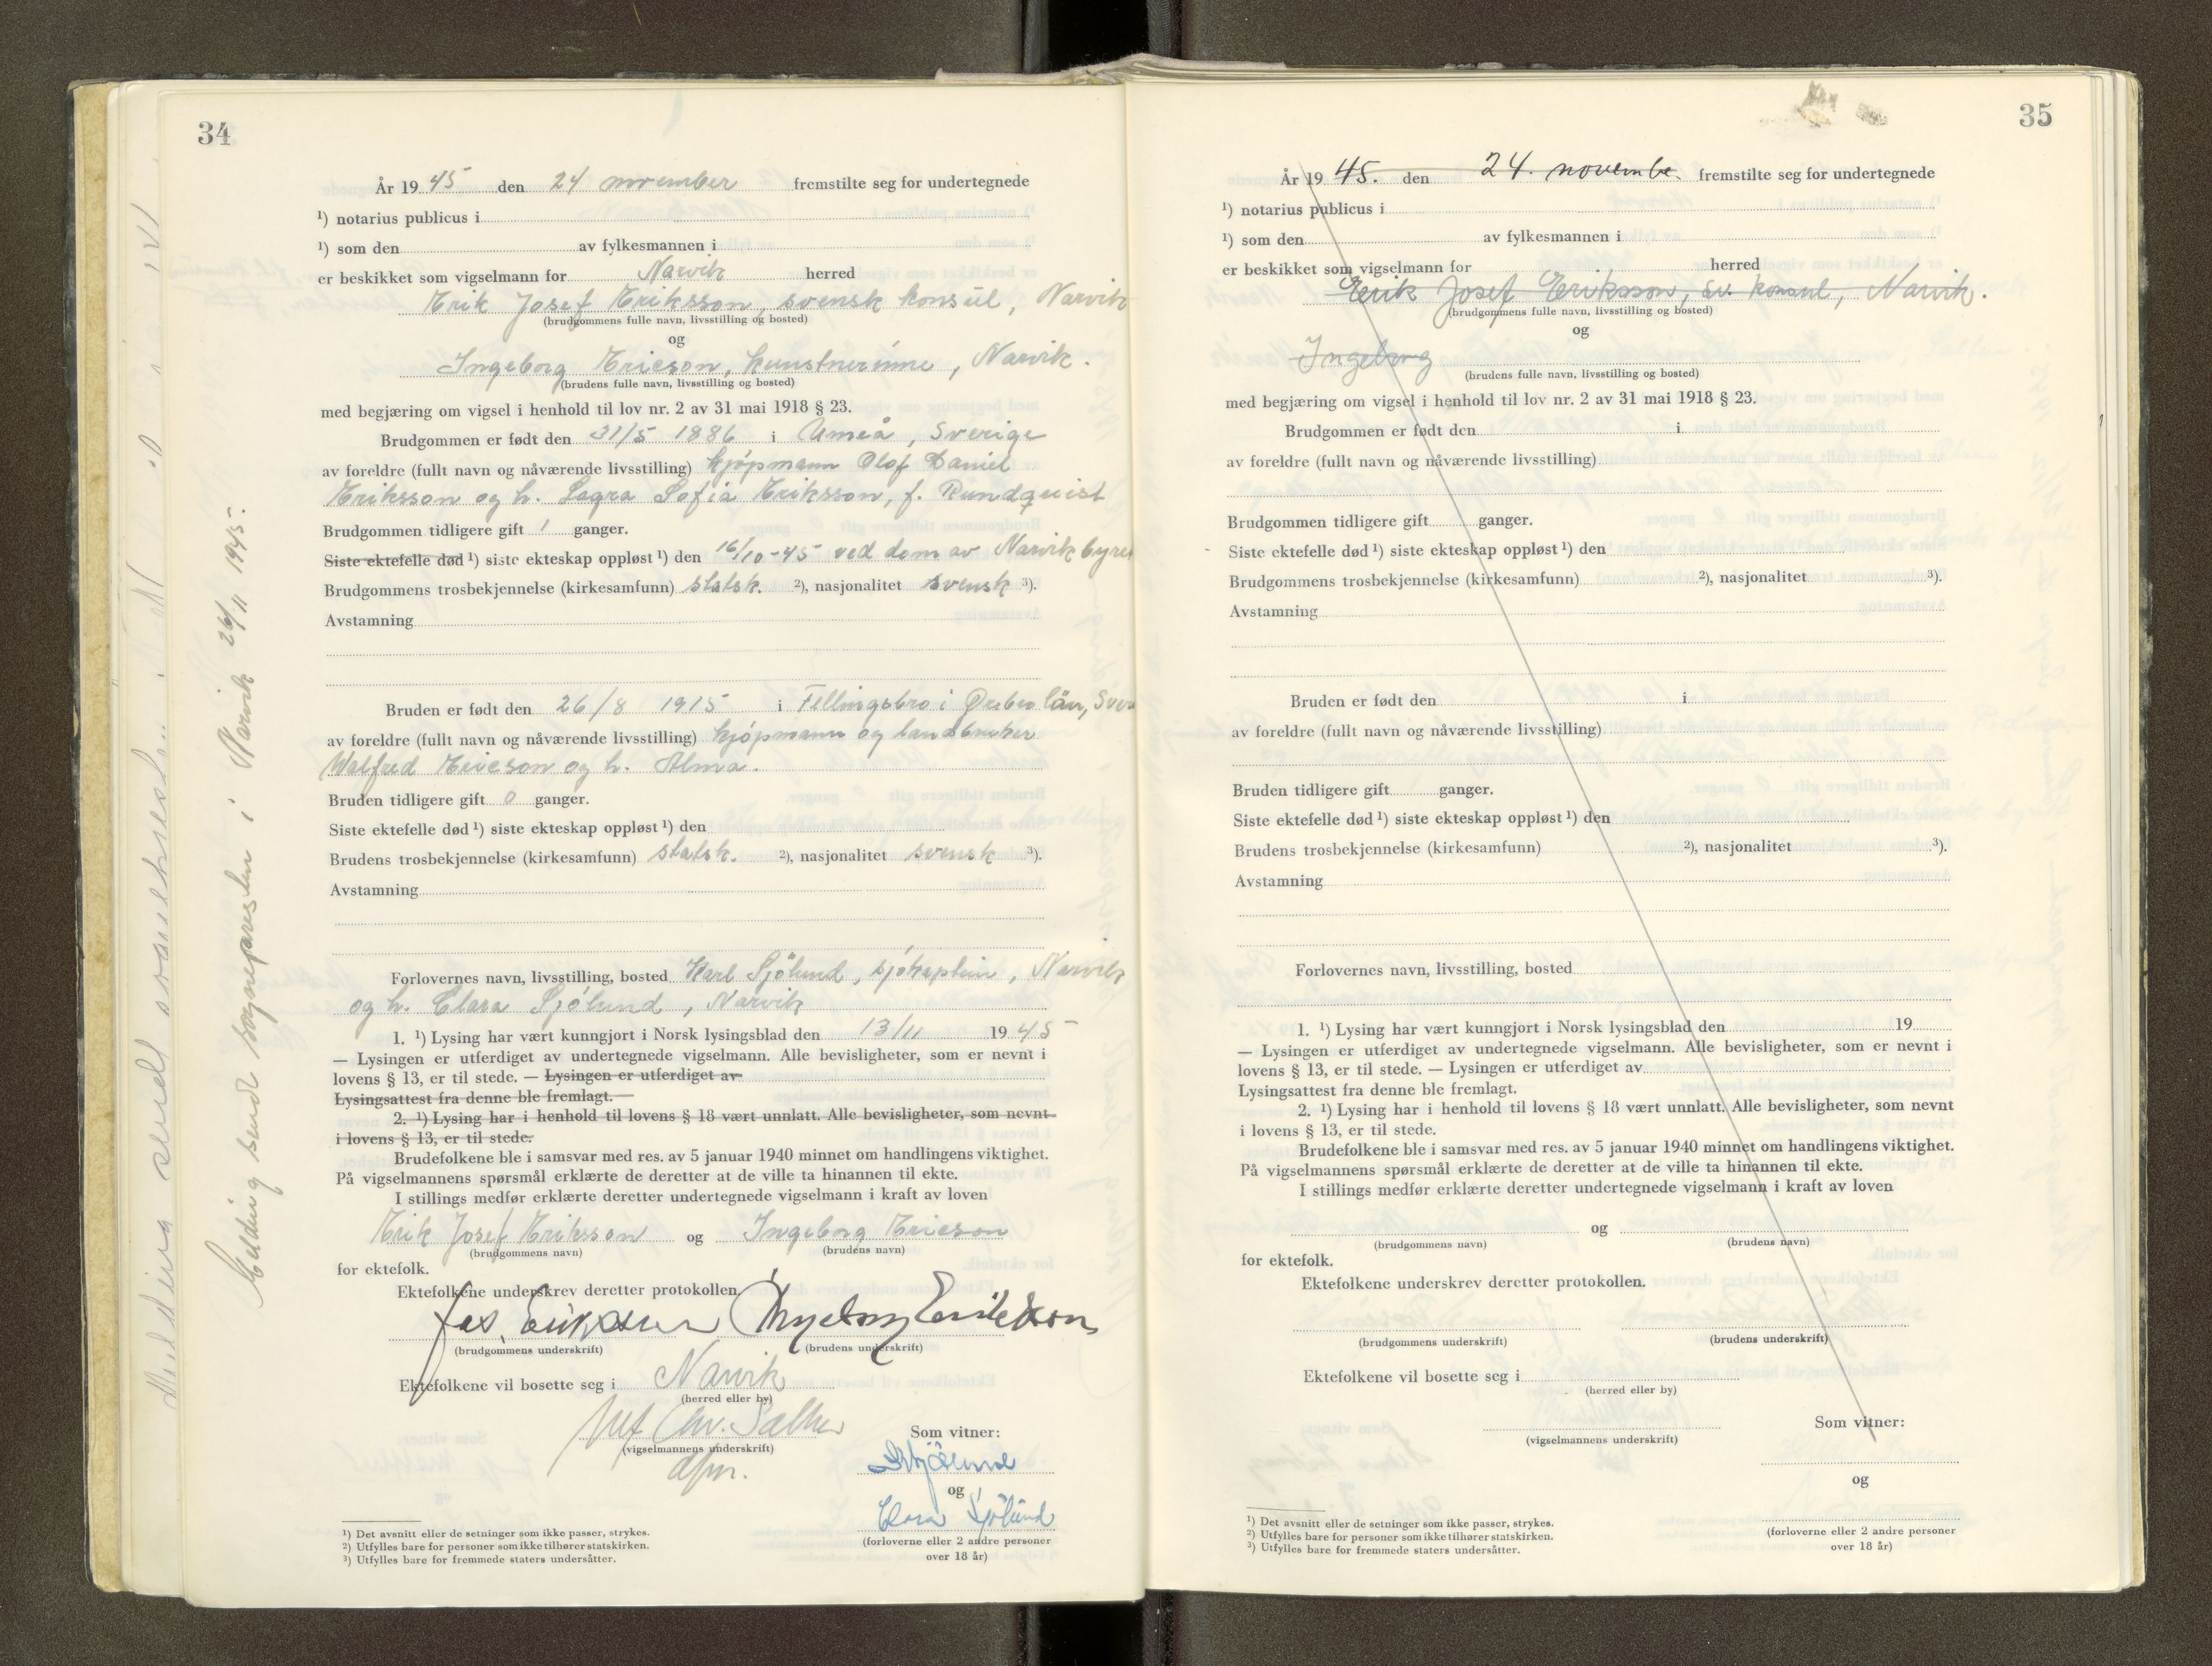 34
År 19 45 den 24 november fremstilte seg for undertegnede
¹) notarius publicus i
¹) som den av fylkesmannen i
er beskikket som vigselmann for Narvik herred
Erik Josef Eriksson, svensk konsul, Narvik
(brudgommens fulle navn, livsstilling og bosted)
og
Ingeborg Ericson, kunstnerinne, Narvik.
(brudens fulle navn, livsstilling og bosted)
med begjæring om vigsel i henhold til lov nr. 2 av 31 mai 1918 § 23.
Brudgommen er født den 31/5 1886 i Umeå, Sverige
av foreldre (fullt navn og nåværende livsstilling) kjøpmann Olof Daniel
Eriksson og h. Sofia Eriksson, f. Rundquist
Brudgommen tidligere gift 1 ganger.
Siste ektefelle død ¹) siste ekteskap oppløst ¹) den 16/10-45 ved dom av Narvik byrett
Brudgommens trosbekjennelse (kirkesamfunn) statsk. ²), nasjonalitet svensk ³).
Avstamning
Bruden er født den 26/8 1915 i Fellingsbro i Ørebro län,
av foreldre (fullt navn og nåværende livsstilling) kjøpmann og landbruker
Walfred Ericson og h. Alma.
Bruden tidligere gift 0 ganger.
Siste ektefelle død ¹) siste ekteskap oppløst ¹) den
Brudens trosbekjennelse (kirkesamfunn) statsk. ²), nasjonalitet svensk ³).
Avstamning
Forlovernes navn, livsstilling, bosted Karl Sjölund, sjökaptein, Narvik
og h. Clara Sjölund, Narvik
1. ¹) Lysing har vært kunngjort i Norsk lysingsblad den 13/11 19 45
— Lysingen er utferdiget av undertegnede vigselmann. Alle bevisligheter, som er nevnt i
lovens § 13, er til stede. — Lysingen er utferdiget av
Lysingsattest fra denne ble fremlagt. —
2. ¹) Lysing har i henhold til lovens § 18 vært unnlatt. Alle bevisligheter, som nevnt
i lovens § 13, er til stede.
Brudefolkene ble i samsvar med res. av 5 januar 1940 minnet om handlingens viktighet.
På vigselmannens spørsmål erklærte de deretter at de ville ta hinannen til ekte.
I stillings medfør erklærte deretter undertegnede vigselmann i kraft av loven
Erik Josef Eriksson og Ingeborg Ericson
(brudgommens navn) (brudens navn)
for ektefolk.
Ektefolkene underskrev deretter protokollen.
Jos. Eriksson Ingeborg Eriksson
(brudgommens underskrift) (brudens underskrift)
Ektefolkene vil bosette seg i Narvik
(herred eller by)
Chr. Sæther
(vigselmannens underskrift)
dfm.
Som vitner:
Sjölund
og
Clara Sjölund
(forloverne eller 2 andre personer
over 18 år)
¹) Det avsnitt eller de setninger som ikke passer, strykes.
²) Utfylles bare for personer som ikke tilhører statskirken.
³) Utfylles bare for fremmede staters undersåtter.
Melding sendt sognepresten i Narvik 26/11 1945.
35
År 19 45. den 24. novembe. fremstilte seg for undertegnede
¹) notarius publicus i
¹) som den av fylkesmannen i
er beskikket som vigselmann for herred
Erik Josef Eriksson, sv. konsul, Narvik.
(brudgommens fulle navn, livsstilling og bosted)
og
Ingeborg
(brudens fulle navn, livsstilling og bosted)
med begjæring om vigsel i henhold til lov nr. 2 av 31 mai 1918 § 23.
Brudgommen er født den i
av foreldre (fullt navn og nåværende livsstilling)
Brudgommen tidligere gift ganger.
Siste ektefelle død ¹) siste ekteskap oppløst ¹) den
Brudgommens trosbekjennelse (kirkesamfunn) ²), nasjonalitet ³).
Avstamning
Bruden er født den i
av foreldre (fullt navn og nåværende livsstilling)
Bruden tidligere gift ganger.
Siste ektefelle død ¹) siste ekteskap oppløst ¹) den
Brudens trosbekjennelse (kirkesamfunn) ²), nasjonalitet ³).
Avstamning
Forlovernes navn, livsstilling, bosted
1. ¹) Lysing har vært kunngjort i Norsk lysingsblad den 19
— Lysingen er utferdiget av undertegnede vigselmann. Alle bevisligheter, som er nevnt i
lovens § 13, er til stede. — Lysingen er utferdiget av
Lysingsattest fra denne ble fremlagt.
2. ¹) Lysing har i henhold til lovens § 18 vært unnlatt. Alle bevisligheter, som nevnt
i lovens § 13, er til stede.
Brudefolkene ble i samsvar med res. av 5 januar 1940 minnet om handlingens viktighet.
På vigselmannens spørsmål erklærte de deretter at de ville ta hinannen til ekte.
I stillings medfør erklærte deretter undertegnede vigselmann i kraft av loven
og
(brudgommens navn) (brudens navn)
for ektefolk.
Ektefolkene underskrev deretter protokollen.
(brudgommens underskrift) (brudens underskrift)
Ektefolkene vil bosette seg i
(herred eller by)
Som vitner:
(vigselmannens underskrift)
og
(forloverne eller 2 andre personer
over 18 år)
¹) Det avsnitt eller de setninger som ikke passer, strykes.
²) Utfylles bare for personer som ikke tilhører statskirken.
³) Utfylles bare for fremmede staters undersåtter.